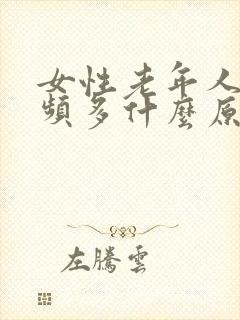 女性老年人
頻多什麼原
左騰雲